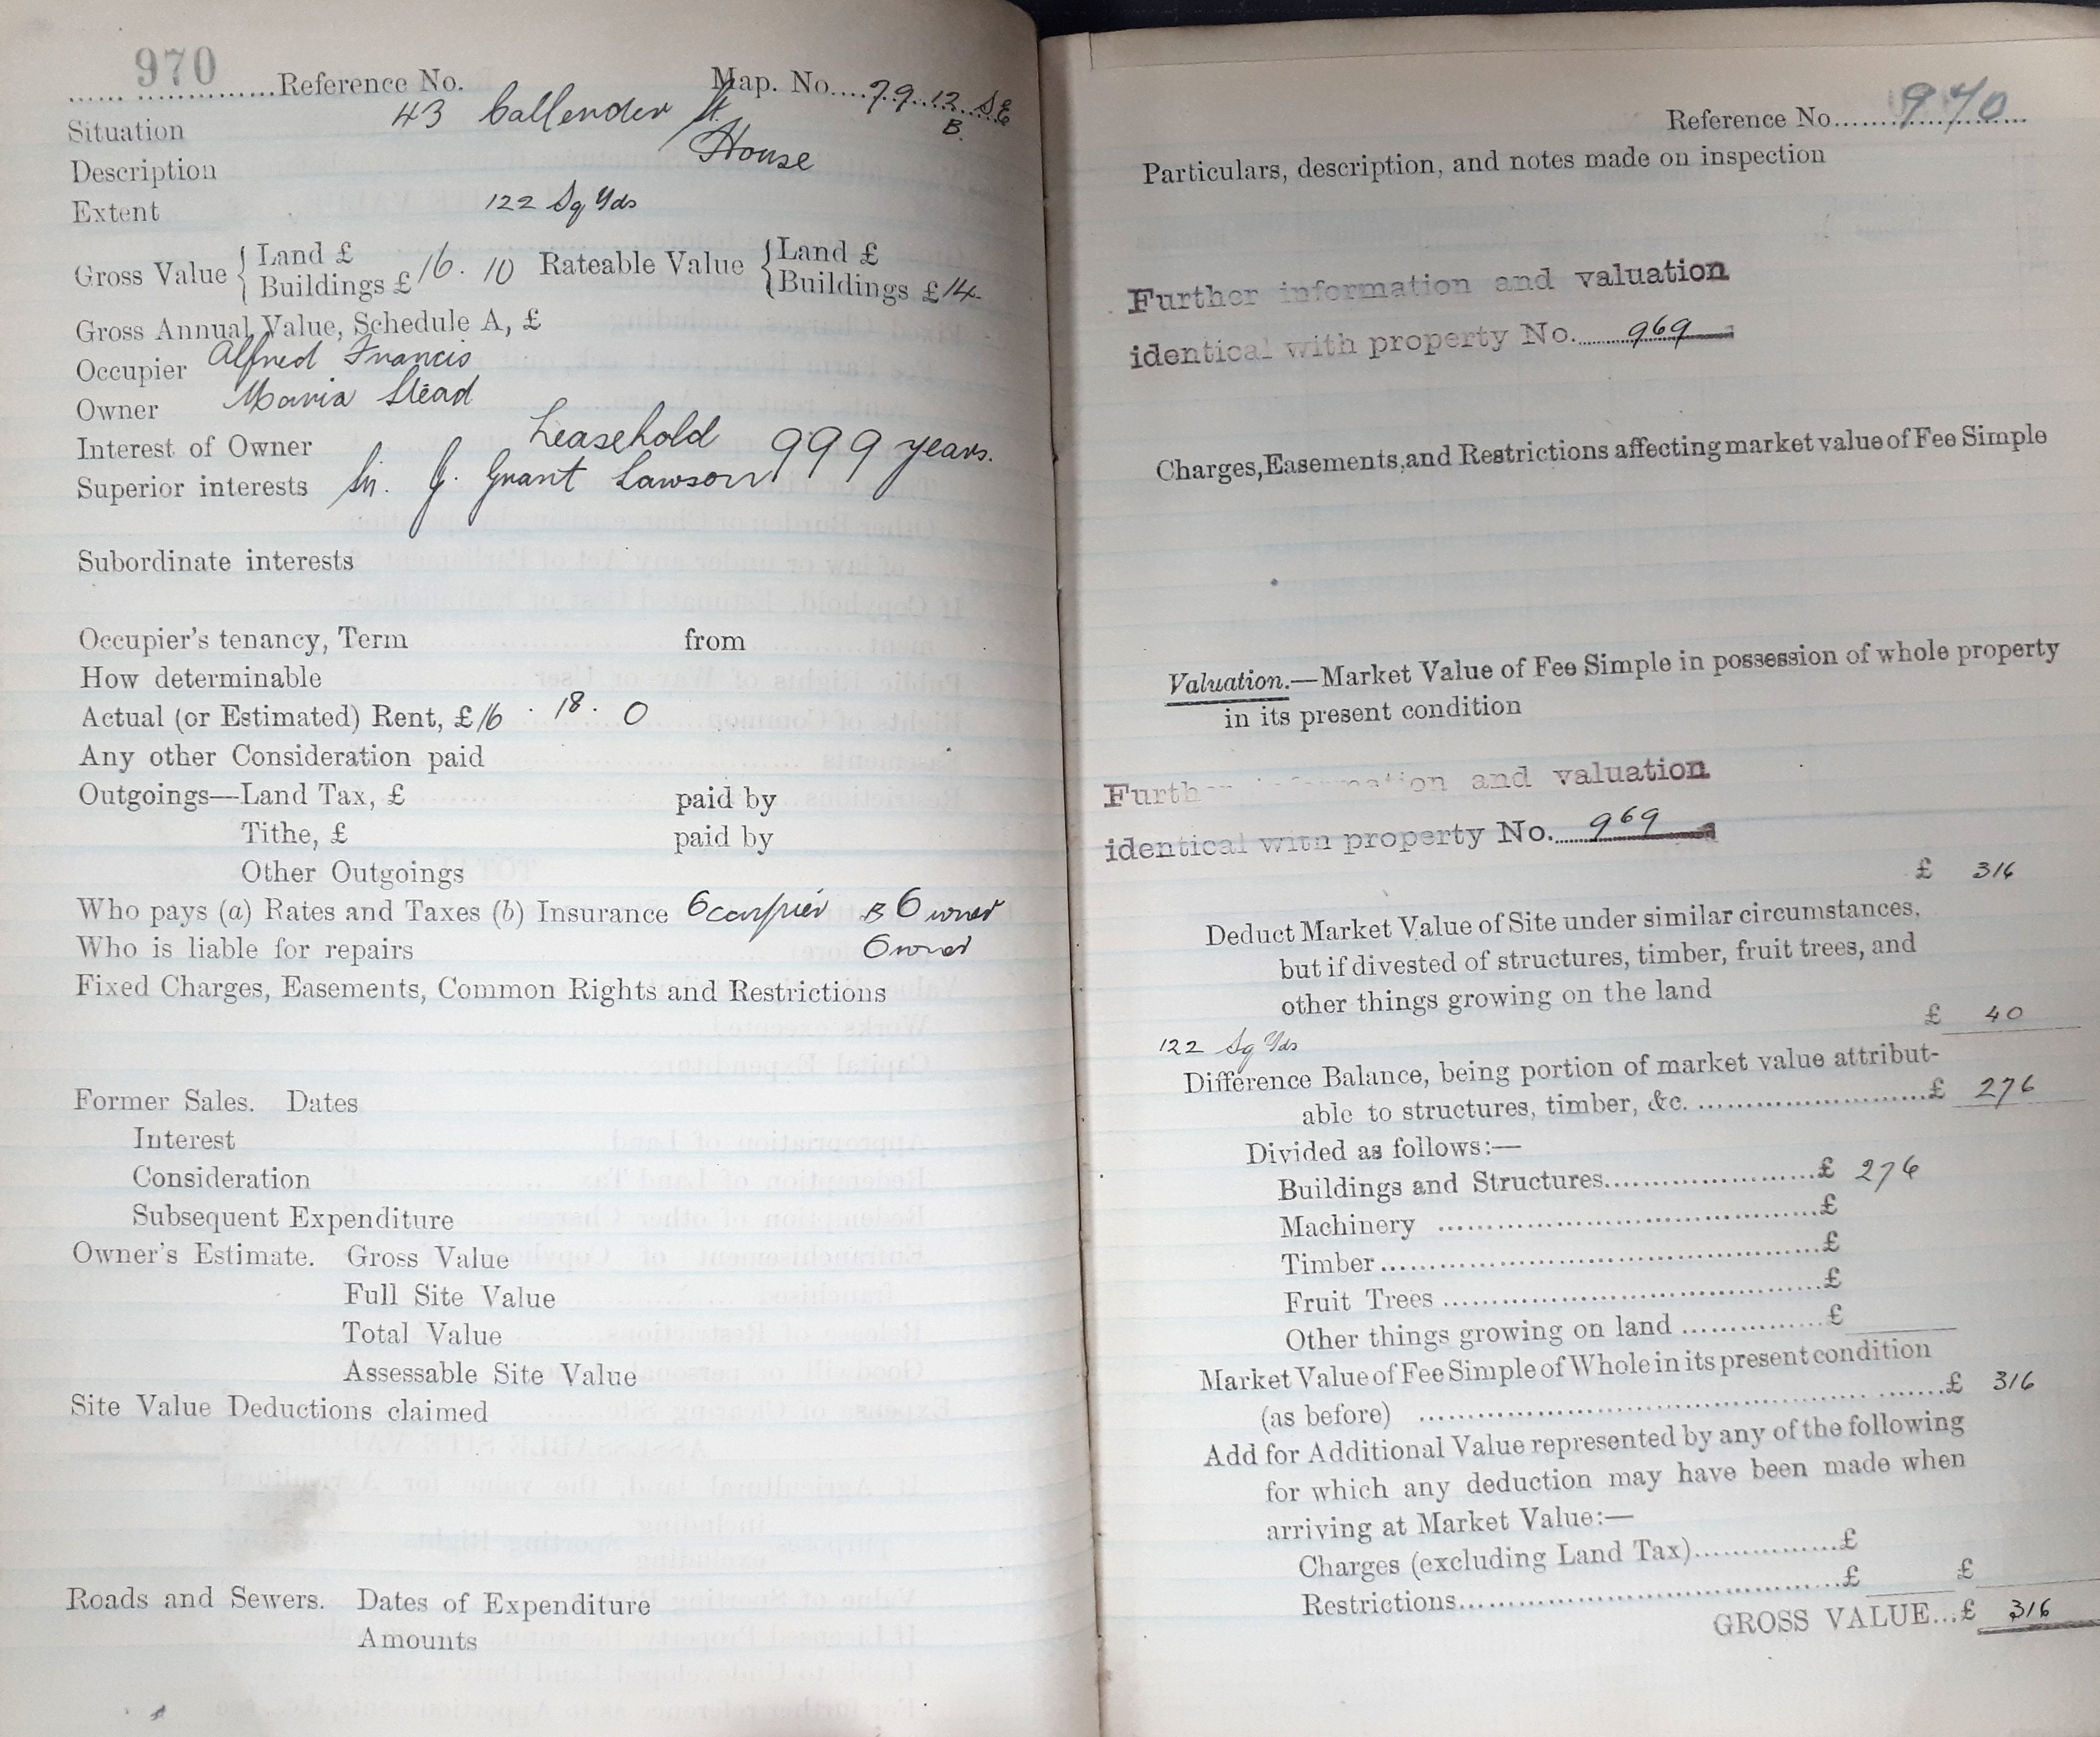 970 Reference No. Map. No. 79.12 SE
B.
Situation 43 Callender St.
Description House
Extent 122 Sq Yds
Gross Value { Land £ Rateable Value { Land £
Buildings £ 16. 10 Buildings £ 14
Gross Annual Value, Schedule A, £
Occupier Alfred Francis
Owner Maria Stead
Interest of Owner Leasehold 999 years.
Superior interests Sir. J. Grant Lawson
Subordinate interests
Occupier's tenancy, Term from
How determinable
Actual (or Estimated) Rent, £ 16 . 18. 0
Any other Consideration paid
Outgoings—Land Tax, £ paid by
Tithe, £ paid by
Other Outgoings
Who pays (a) Rates and Taxes (b) Insurance Occupier B Owner
Who is liable for repairs Owner
Fixed Charges, Easements, Common Rights and Restrictions
Former Sales. Dates
Interest
Consideration
Subsequent Expenditure
Owner's Estimate. Gross Value
Full Site Value
Total Value
Assessable Site Value
Site Value Deductions claimed
Roads and Sewers. Dates of Expenditure
Amounts
Reference No. 970
Particulars, description, and notes made on inspection
Further information and valuation
identical with property No. 969
Charges, Easements, and Restrictions affecting market value of Fee Simple
Valuation.—Market Value of Fee Simple in possession of whole property
in its present condition
Further information and valuation
identical with property No. 969
£ 316
Deduct Market Value of Site under similar circumstances,
but if divested of structures, timber, fruit trees, and
other things growing on the land
£ 40
122 Sq Yds
Difference Balance, being portion of market value attribut-
able to structures, timber, &c. £ 276
Divided as follows:—
Buildings and Structures £ 276
Machinery £
Timber £
Fruit Trees £
Other things growing on land £
Market Value of Fee Simple of Whole in its present condition
(as before) £ 316
Add for Additional Value represented by any of the following
for which any deduction may have been made when
arriving at Market Value:—
Charges (excluding Land Tax) £
Restrictions £ £
GROSS VALUE...£ 316